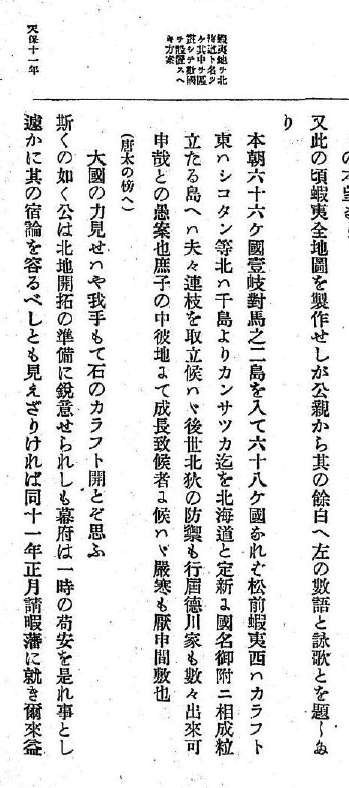 の不望き
又此の頃蝦夷全地圖を製作せしが公親から其の餘白へ左の數語と詠歌とを題しあ
り
本朝六十六ケ國壹岐對馬之二島を入て六十八ケ國なれど松前蝦夷西ハカラフト
東ハシコタン等北ハ千島よりカンサツカ迄を北海道と定新ま國名御附ニ相成粒
立たる島へハ夫々連枝を取立候ハヾ後世北狄の防禦も行屆德川家も數々出來可
申哉との愚案也庶子の中彼地まて成長致候者ま候ハヾ嚴寒も厭申間敷也
(唐太の傍へ)
大國の力見せハや我手もて石のカラフト開とぞ思ふ
斯くの如く公は北地開拓の準備に銳意せられしも幕府は一時の苟安を是れ事とし
遽かに其の宿論を容るべしとも見えざりければ同十一年正月請暇藩に就き爾來益
蝦夷地ヲ北
海道ト名ツ
ケ其中ヲ區
劃シテ數國
ヲ設置スヘ
キ方案
天保十一年